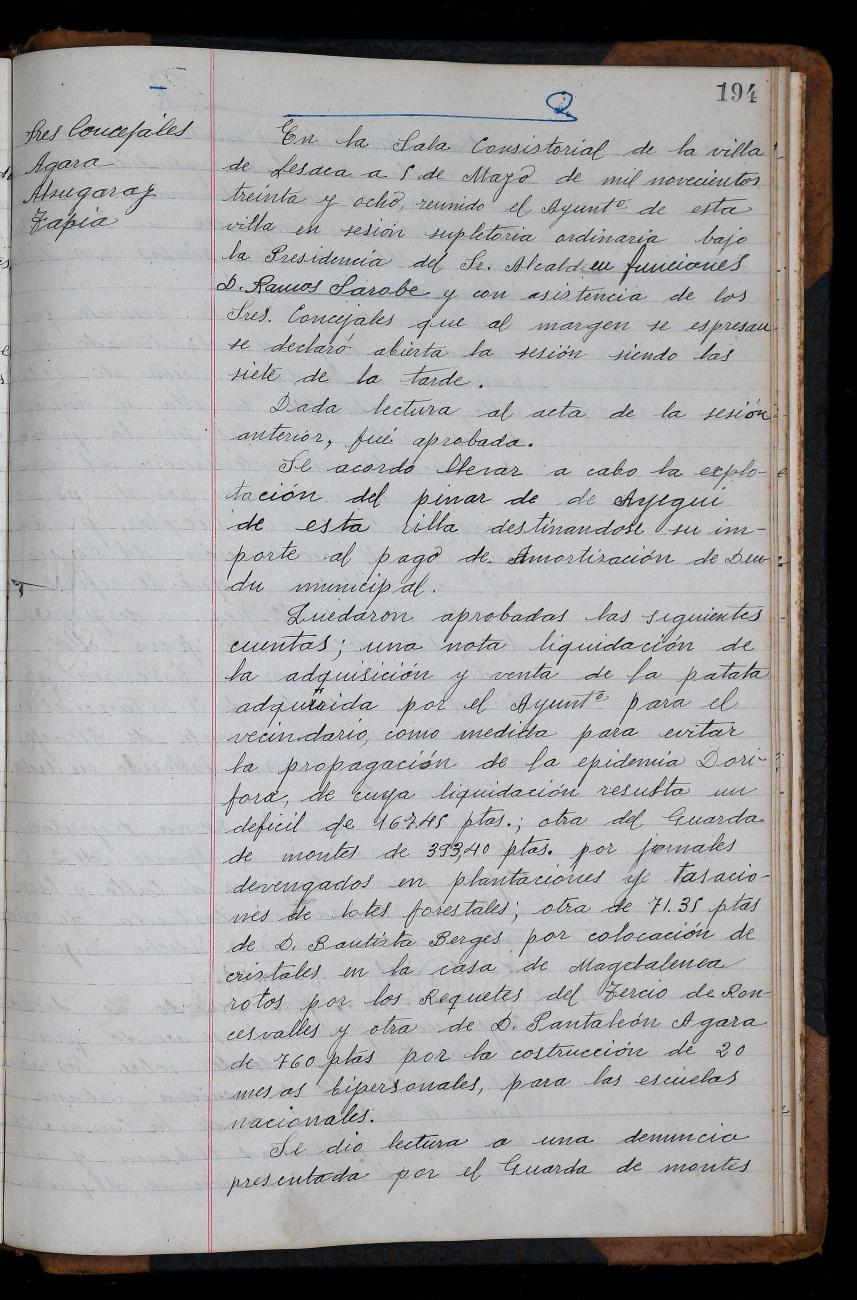 194
Sres Concejales
Agara
Alsugaray
Tapia
En la Sala Consistorial de la villa
de Lesaca a 5 de Mayo de mil novecientos
treinta y ocho, reunido el Ayuntº de esta
villa en sesión supletoria ordinaria bajo
la Presidencia del Sr. Alcald en funciones
D. Ramos Sarobe y con asistencia de los
Sres. Concejales que al margen se espresan
se declaró abierta la sesión siendo las
siete de la tarde.
Dada lectura al acta de la sesión
anterior, fué aprobada.
Se acordo llevar a cabo la explo-
tación del pinar de de Ayegui
de esta villa destinandose su im-
porte al pago de Amortización de Deu-
da municipal.
Quedaron aprobadas las siguientes
cuentas; una nota liquidación de
la adquisición y venta de la patata
adquirida por el Ayuntº para el
vecindario, como medida para evitar
la propagación de la epidemia Dori-
fora, de cuya liquidación resulta un
deficil de 167.45 ptas.; otra del Guarda
de montes de 393,40 ptas. por jornales
devengados en plantaciones y tasacio-
nes de lotes forestales; otra de 71.35 ptas
de D. Bautista Berges por colocación de
cristales en la casa de Magdalenea
rotos por los Requetes del Tercio de Ron-
cesvalles y otra de D. Pantaleón Agara
de 760 ptas por la costrucción de 20
mesas bipersonales, para las escuelas
nacionales.
Se dio lectura a una denuncia
presentada por el Guarda de montes